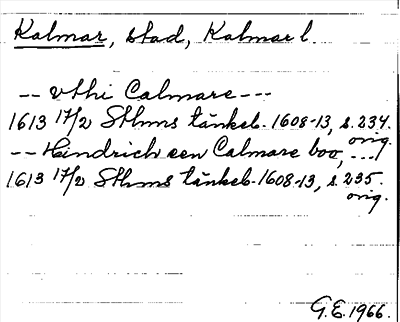 Kalmar, stad, Kalmar l.
-- vthi Calmare ---
1613 17/2 Sthms tänkeb. 1608-13, s. 234.
orig.
-- Hindrich een Calmare boo, ---
1613 17/2 Sthms tänkeb. 1608-13, s. 235.
orig.
G.E. 1966.